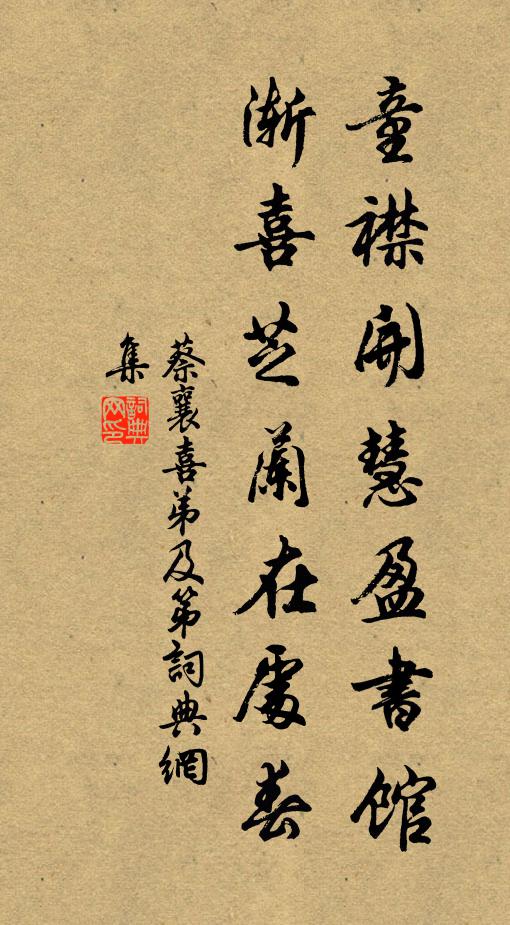 童襟開慧盈書館
漸喜芝蘭在處春
蔡襄喜弟及第詞典網
集
詞典
网印